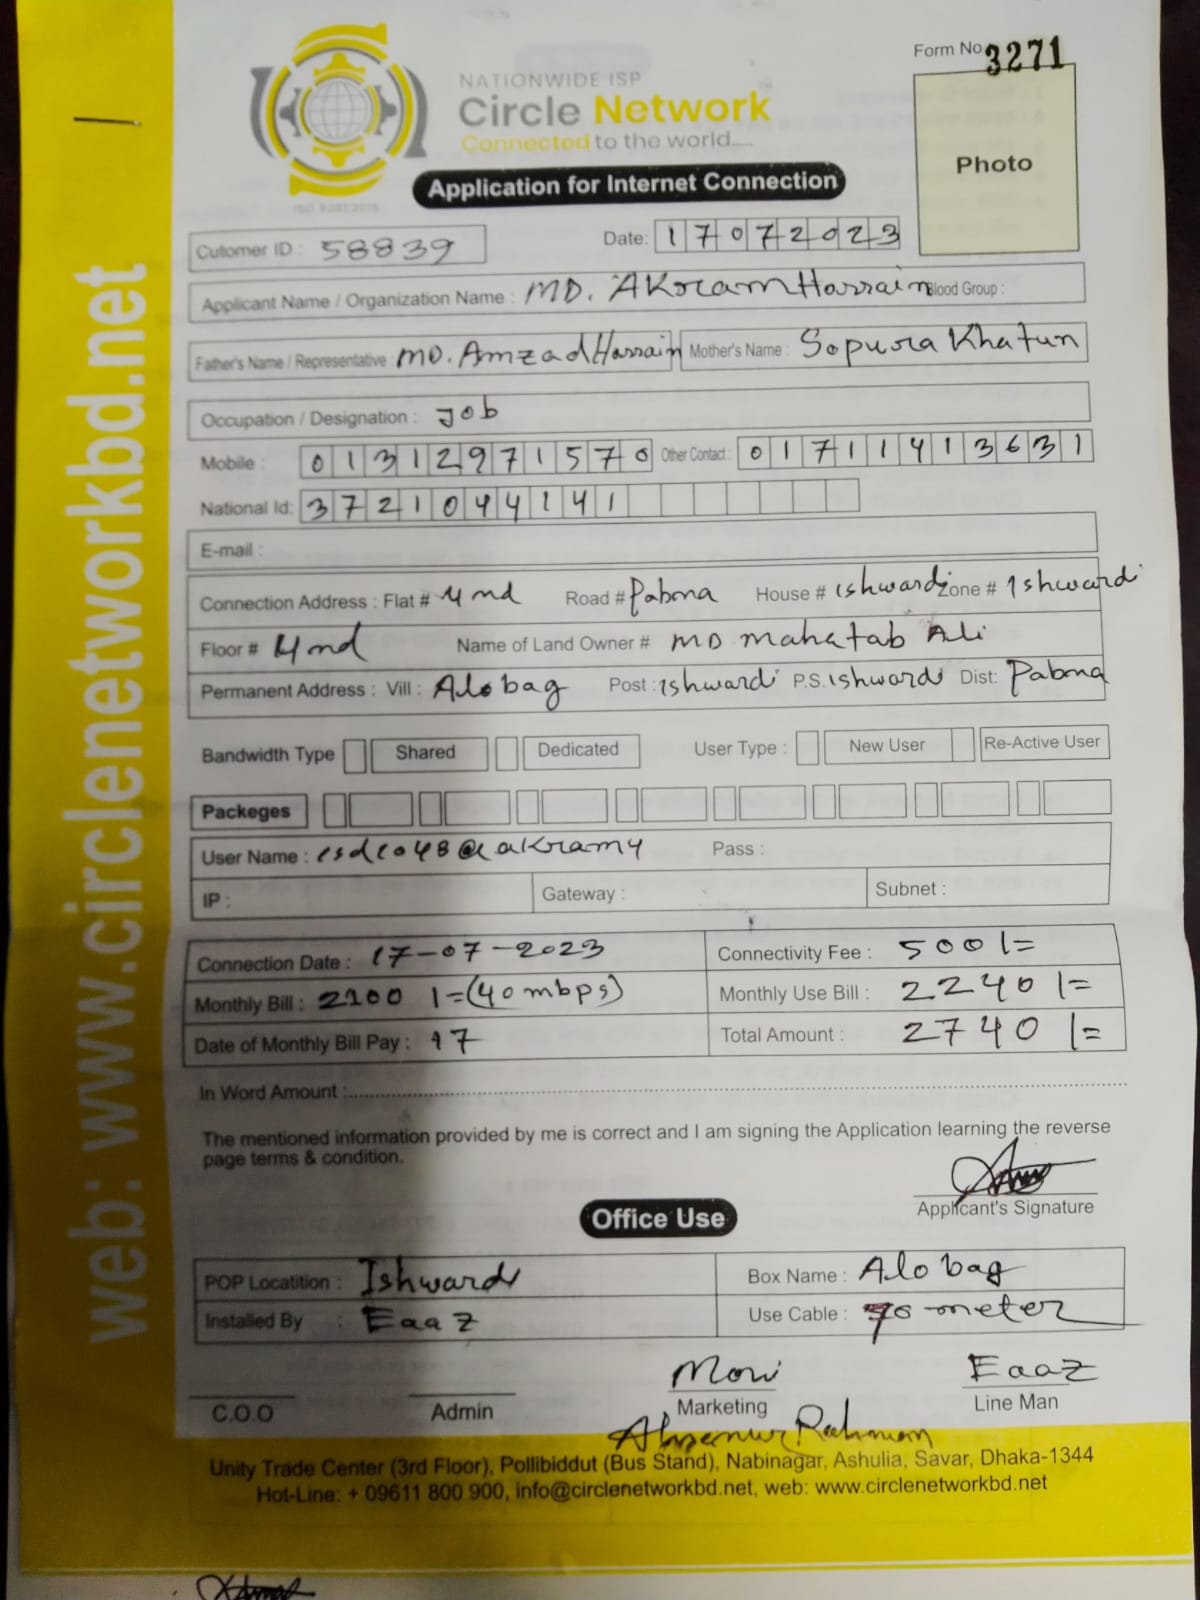 Form No 3271
NATIONWIDE ISP
Circle Network
Connected to the world.....
Photo
Application for Internet Connection
Cutomer ID : 58839
Date: 17072023
Applicant Name / Organization Name : MD. AKram Hossain Blood Group :
Father's Name / Representative : MD. Amzad Hossain Mother's Name : Sopura Khatun
Occupation / Designation : Job
Mobile : 01312971570 Other Contact : 01711413631
National Id: 3721044141
E-mail :
Connection Address : Flat # 4nd Road # Pabna House # ishwardi Zone # Ishwardi
Floor # 4nd Name of Land Owner # MD mahatab Ali
Permanent Address : Vill : Alobag Post : ishwardi P.S. ishwardi Dist: Pabna
Bandwidth Type Shared Dedicated User Type : New User Re-Active User
Packeges
User Name : Pass :
IP : Gateway : Subnet :
Connection Date : 17-07-2023 Connectivity Fee : 500/=
Monthly Bill : 2100/=(40mbps) Monthly Use Bill : 2240/=
Date of Monthly Bill Pay : 17 Total Amount : 2740/=
In Word Amount :
The mentioned information provided by me is correct and I am signing the Application learning the reverse
page terms & condition.
Applicant's Signature
Office Use
POP Locatition : Ishwardi Box Name : Alobag
Installed By : Eaaz Use Cable : 70 meter
Moni Eaaz
C.O.O Admin Marketing Line Man
Rahman
Unity Trade Center (3rd Floor), Pollibiddut (Bus Stand), Nabinagar, Ashulia, Savar, Dhaka-1344
Hot-Line: + 09611 800 900, info@circlenetworkbd.net, web: www.circlenetworkbd.net
web: www.circlenetworkbd.net